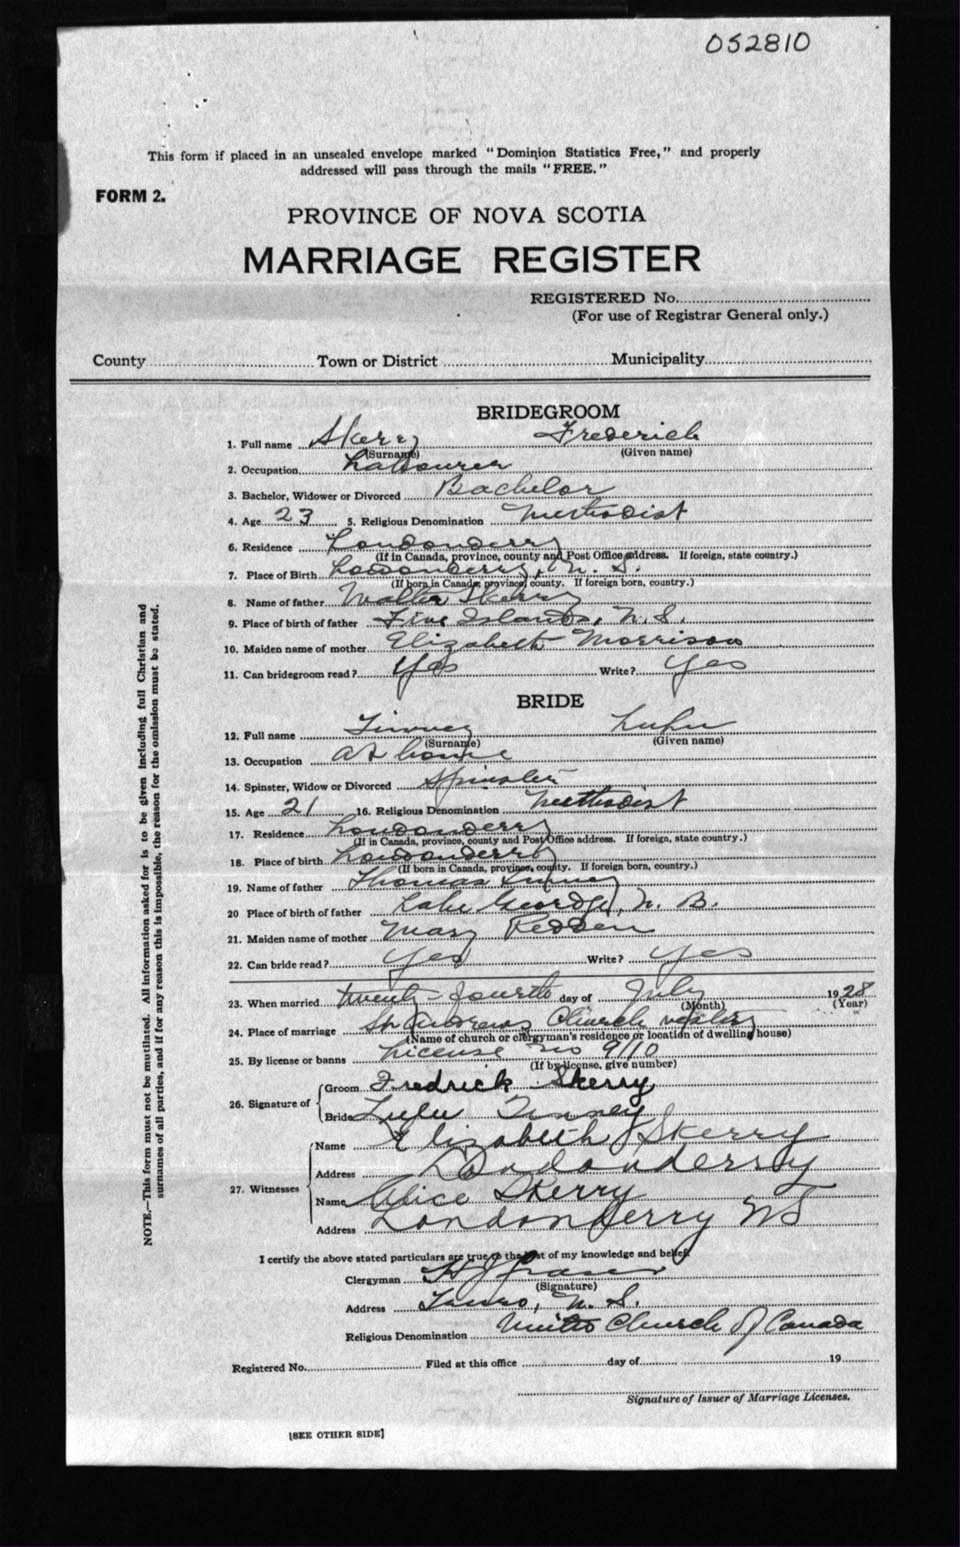 052810
This form if placed in an unsealed envelope marked "Dominion Statistics Free," and properly
addressed will pass through the mails "FREE."
FORM 2.
PROVINCE OF NOVA SCOTIA
MARRIAGE REGISTER
REGISTERED No.
(For use of Registrar General only.)
County Town or District Municipality
BRIDEGROOM
1. Full name Skerry Frederick
(Surname) (Given name)
2. Occupation Labourer
3. Bachelor, Widower or Divorced Bachelor
4. Age 23 5. Religious Denomination Methodist
6. Residence Londonderry
(If in Canada, province, county and Post Office address. If foreign, state country.)
7. Place of Birth Londonderry, N. S.
(If born in Canada, province, county. If foreign born, country.)
8. Name of father Walter Skerry
9. Place of birth of father Five Islands, N.S.
10. Maiden name of mother Elizabeth Morrison
11. Can bridegroom read? Yes Write? Yes
BRIDE
12. Full name Tinney Lulu
(Surname) (Given name)
13. Occupation At home
14. Spinster, Widow or Divorced Spinster
15. Age 21 16. Religious Denomination Methodist
17. Residence Londonderry
(If in Canada, province, county and Post Office address. If foreign, state country.)
18. Place of birth Londonderry
(If born in Canada, province, county. If foreign born, country.)
19. Name of father Thomas Tinney
20 Place of birth of father Lake George, N. B.
21. Maiden name of mother Mary Redden
22. Can bride read? Yes Write? Yes
23. When married twenty-fourth day of July 1928
(Month) (Year)
24. Place of marriage St Andrews Church
(Name of church or clergyman's residence or location of dwelling house)
25. By license or banns License no 9110
(If by license, give number)
26. Signature of Groom Fredrick Skerry
Bride Lulu Tinney
27. Witnesses Name Elizabeth J Skerry
Address Londonderry
Name Alice Skerry
Address Londonderry NS
I certify the above stated particulars are true to the best of my knowledge and belief.
Clergyman H J Fraser
(Signature)
Address Truro, N. S.
Religious Denomination United Church of Canada
Registered No. Filed at this office day of 19
Signature of Issuer of Marriage Licenses.
[SEE OTHER SIDE]
NOTE.—This form must not be mutilated. All information asked for is to be given including full Christian and
surnames of all parties, and if for any reason this is impossible, the reason for the omission must be stated.